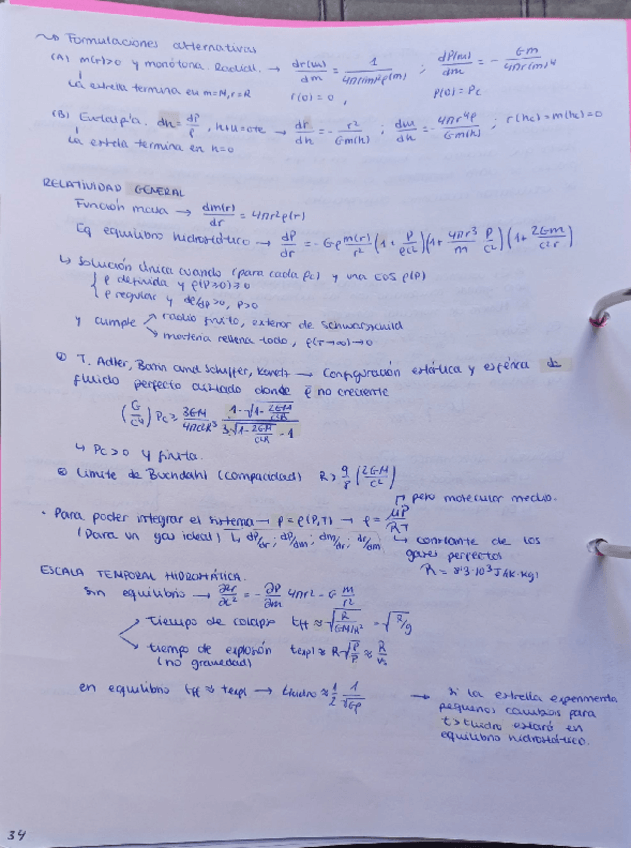 ~> Formulaciones alternativas
(A) m(r)>0 y monótona. Radial. → dr(m)/dm = 1/4πr(m)²ρ(m) ; dP(m)/dm = - Gm/4πr(m)⁴
↳ La estrella termina en m=M, r=R    r(0)=0 ,    P(0)=Pc
(B) Entalpía. dh = dP/ρ , h+u=cte → dr/dh = - r²/Gm(h) ; dm/dh = - 4πr⁴ρ/Gm(h) ; r(hc)=m(hc)=0
↳ La estrella termina en h=0
RELATIVIDAD GENERAL
Función masa → dm(r)/dr = 4πr²ρ(r)
Eq equilibrio hidrostático → dP/dr = - Gρ m(r)/r² (1+ P/ρc²)(1+ 4πr³/m P/c²)(1+ 2Gm/c²r)
↳ Solución única cuando (para cada ρc) y una EOS ρ(P)
{ ρ definida y ρ(P≥0)≥0
ρ regular y dρ/dP>0, P>0
y cumple ↗ radio finito, exterior de Schwarzschild
↘ materia rellena todo, ρ(r→∞)→0
① T. Adler, Bonn and Schiffer, → Configuración estática y esférica de
fluido perfecto aislado donde ρ no creciente
(G/c⁴) Pc ≥ 3GM/4πc²R³ 1-√1-2GM/c²R / 3√1-2GM/c²R -1
↳ Pc>0 y finita.
② Límite de Buchdahl (compacidad) R> 9/8 (2GM/c²)
↱ peso molecular medio.
· Para poder integrar el sistema → ρ=ρ(P,T) → ρ = μP/RT
(Para un gas ideal) ↳ dP/dr ; dP/dm ; dm/dr ; dr/dm    ↳ constante de los
gases perfectos
R = 8'3·10³ J/K·kg
ESCALA TEMPORAL HIDROSTÁTICA.
Sin equilibrio → ∂²r/∂t² = - ∂P/∂m 4πr² - G m/r²
↗ tiempo de colapso tff ≈ √R/GM/R² = √R/g
↘ tiempo de explosión texpl ≈ R√ρ/P ≈ R/vs
(no gravedad)
en equilibrio tff ≈ texpl → thidro ≈ 1/2 1/√Gρ
→ si la estrella experimenta
pequeños cambios para
t>thidro estará en
equilibrio hidrostático.
34